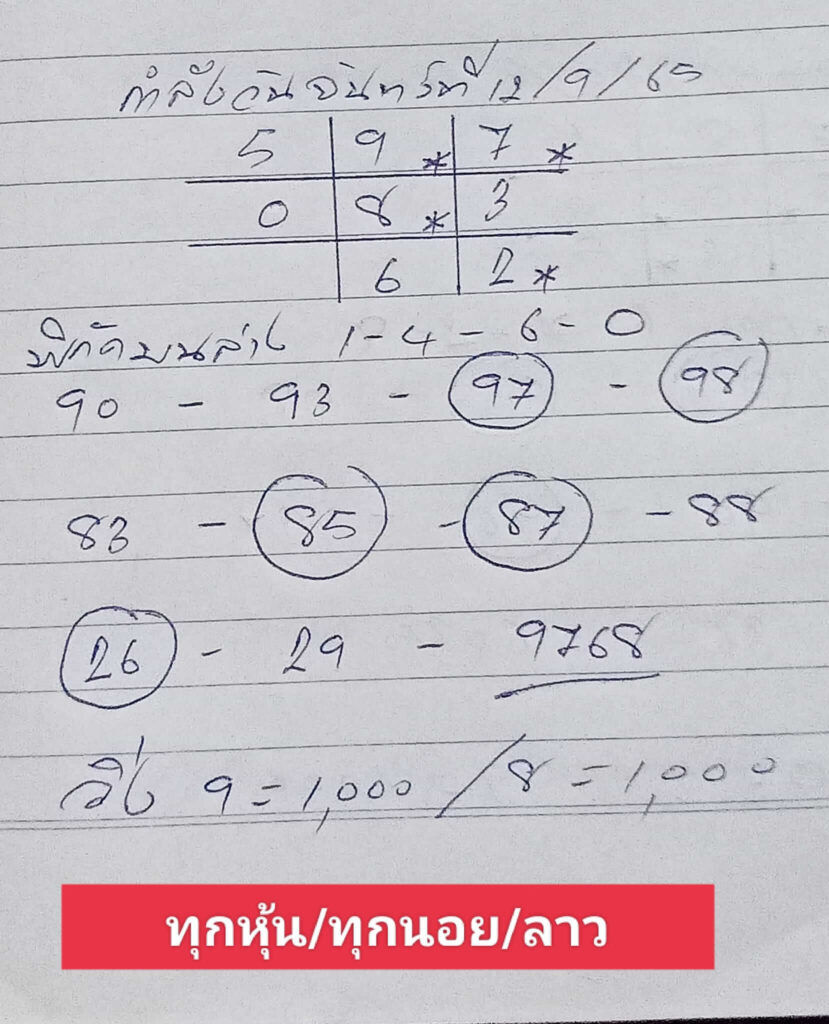 กำลังวันจันทร์ที่ 12/9/65
5 9* 7*
0 8* 3
6 2*
พิกัดบนล่าง 1-4-6-0
90 - 93 - 97 - 98
83 - 85 - 87 - 88
26 - 29 - 9768
วิ่ง 9=1,000/8=1,000
ทุกหุ้น/ทุกนอย/ลาว